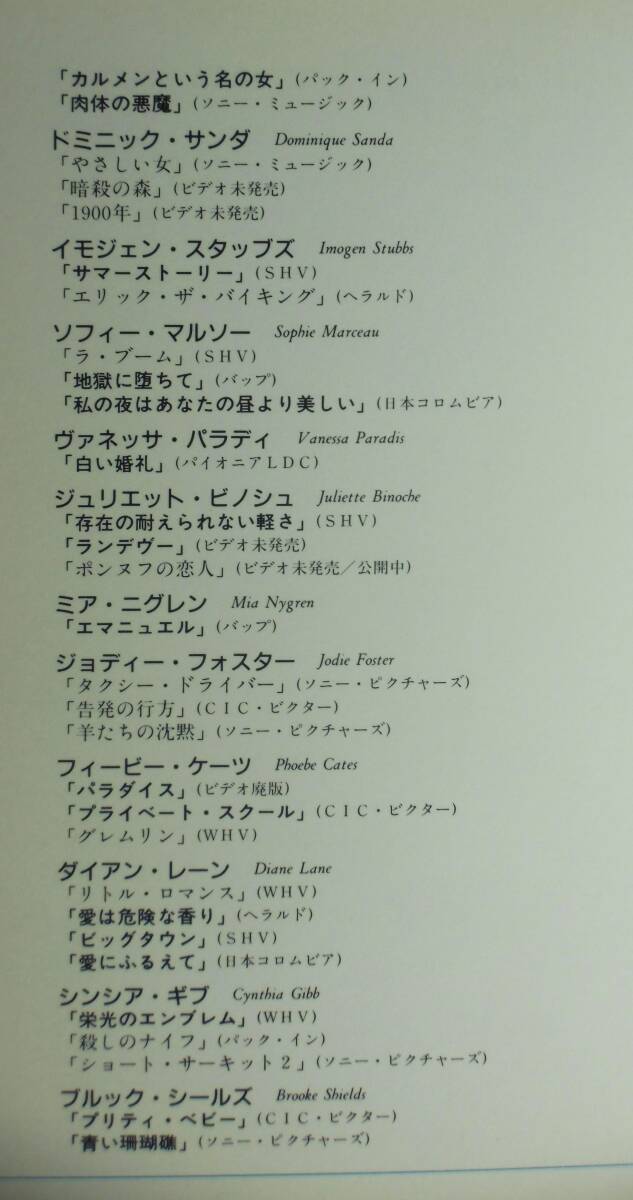 「カルメンという名の女」(パック・イン)
「肉体の悪魔」(ソニー・ミュージック)
ドミニック・サンダ Dominique Sanda
「やさしい女」(ソニー・ミュージック)
「暗殺の森」(ビデオ未発売)
「1900年」(ビデオ未発売)
イモジェン・スタッブズ Imogen Stubbs
「サマーストーリー」(SHV)
「エリック・ザ・バイキング」(ヘラルド)
ソフィー・マルソー Sophie Marceau
「ラ・ブーム」(SHV)
「地獄に堕ちて」(バップ)
「私の夜はあなたの昼より美しい」(日本コロムビア)
ヴァネッサ・パラディ Vanessa Paradis
「白い婚礼」(パイオニアLDC)
ジュリエット・ビノシュ Juliette Binoche
「存在の耐えられない軽さ」(SHV)
「ランデヴー」(ビデオ未発売)
「ポンヌフの恋人」(ビデオ未発売/公開中)
ミア・ニグレン Mia Nygren
「エマニュエル」(バップ)
ジョディー・フォスター Jodie Foster
「タクシー・ドライバー」(ソニー・ピクチャーズ)
「告発の行方」(CIC・ビクター)
「羊たちの沈黙」(ソニー・ピクチャーズ)
フィービー・ケーツ Phoebe Cates
「パラダイス」(ビデオ廃版)
「プライベート・スクール」(CIC・ビクター)
「グレムリン」(WHV)
ダイアン・レーン Diane Lane
「リトル・ロマンス」(WHV)
「愛は危険な香り」(ヘラルド)
「ビッグタウン」(SHV)
「愛にふるえて」(日本コロムビア)
シンシア・ギブ Cynthia Gibb
「栄光のエンブレム」(WHV)
「殺しのナイフ」(パック・イン)
「ショート・サーキット2」(ソニー・ピクチャーズ)
ブルック・シールズ Brooke Shields
「プリティ・ベビー」(CIC・ビクター)
「青い珊瑚礁」(ソニー・ピクチャーズ)